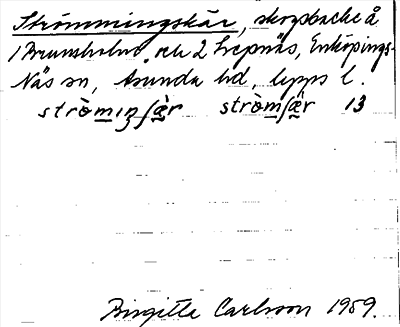 Strömmingskär, skogsbacke å
1 Brunnsholm och 2 Svepnäs, Enköpings-
Näs sn, Åsunda hd, Upps l.
strö̀miŋʃæ̀r strö̀mʃæ̀r 13
Birgitta Carlsson 1959.